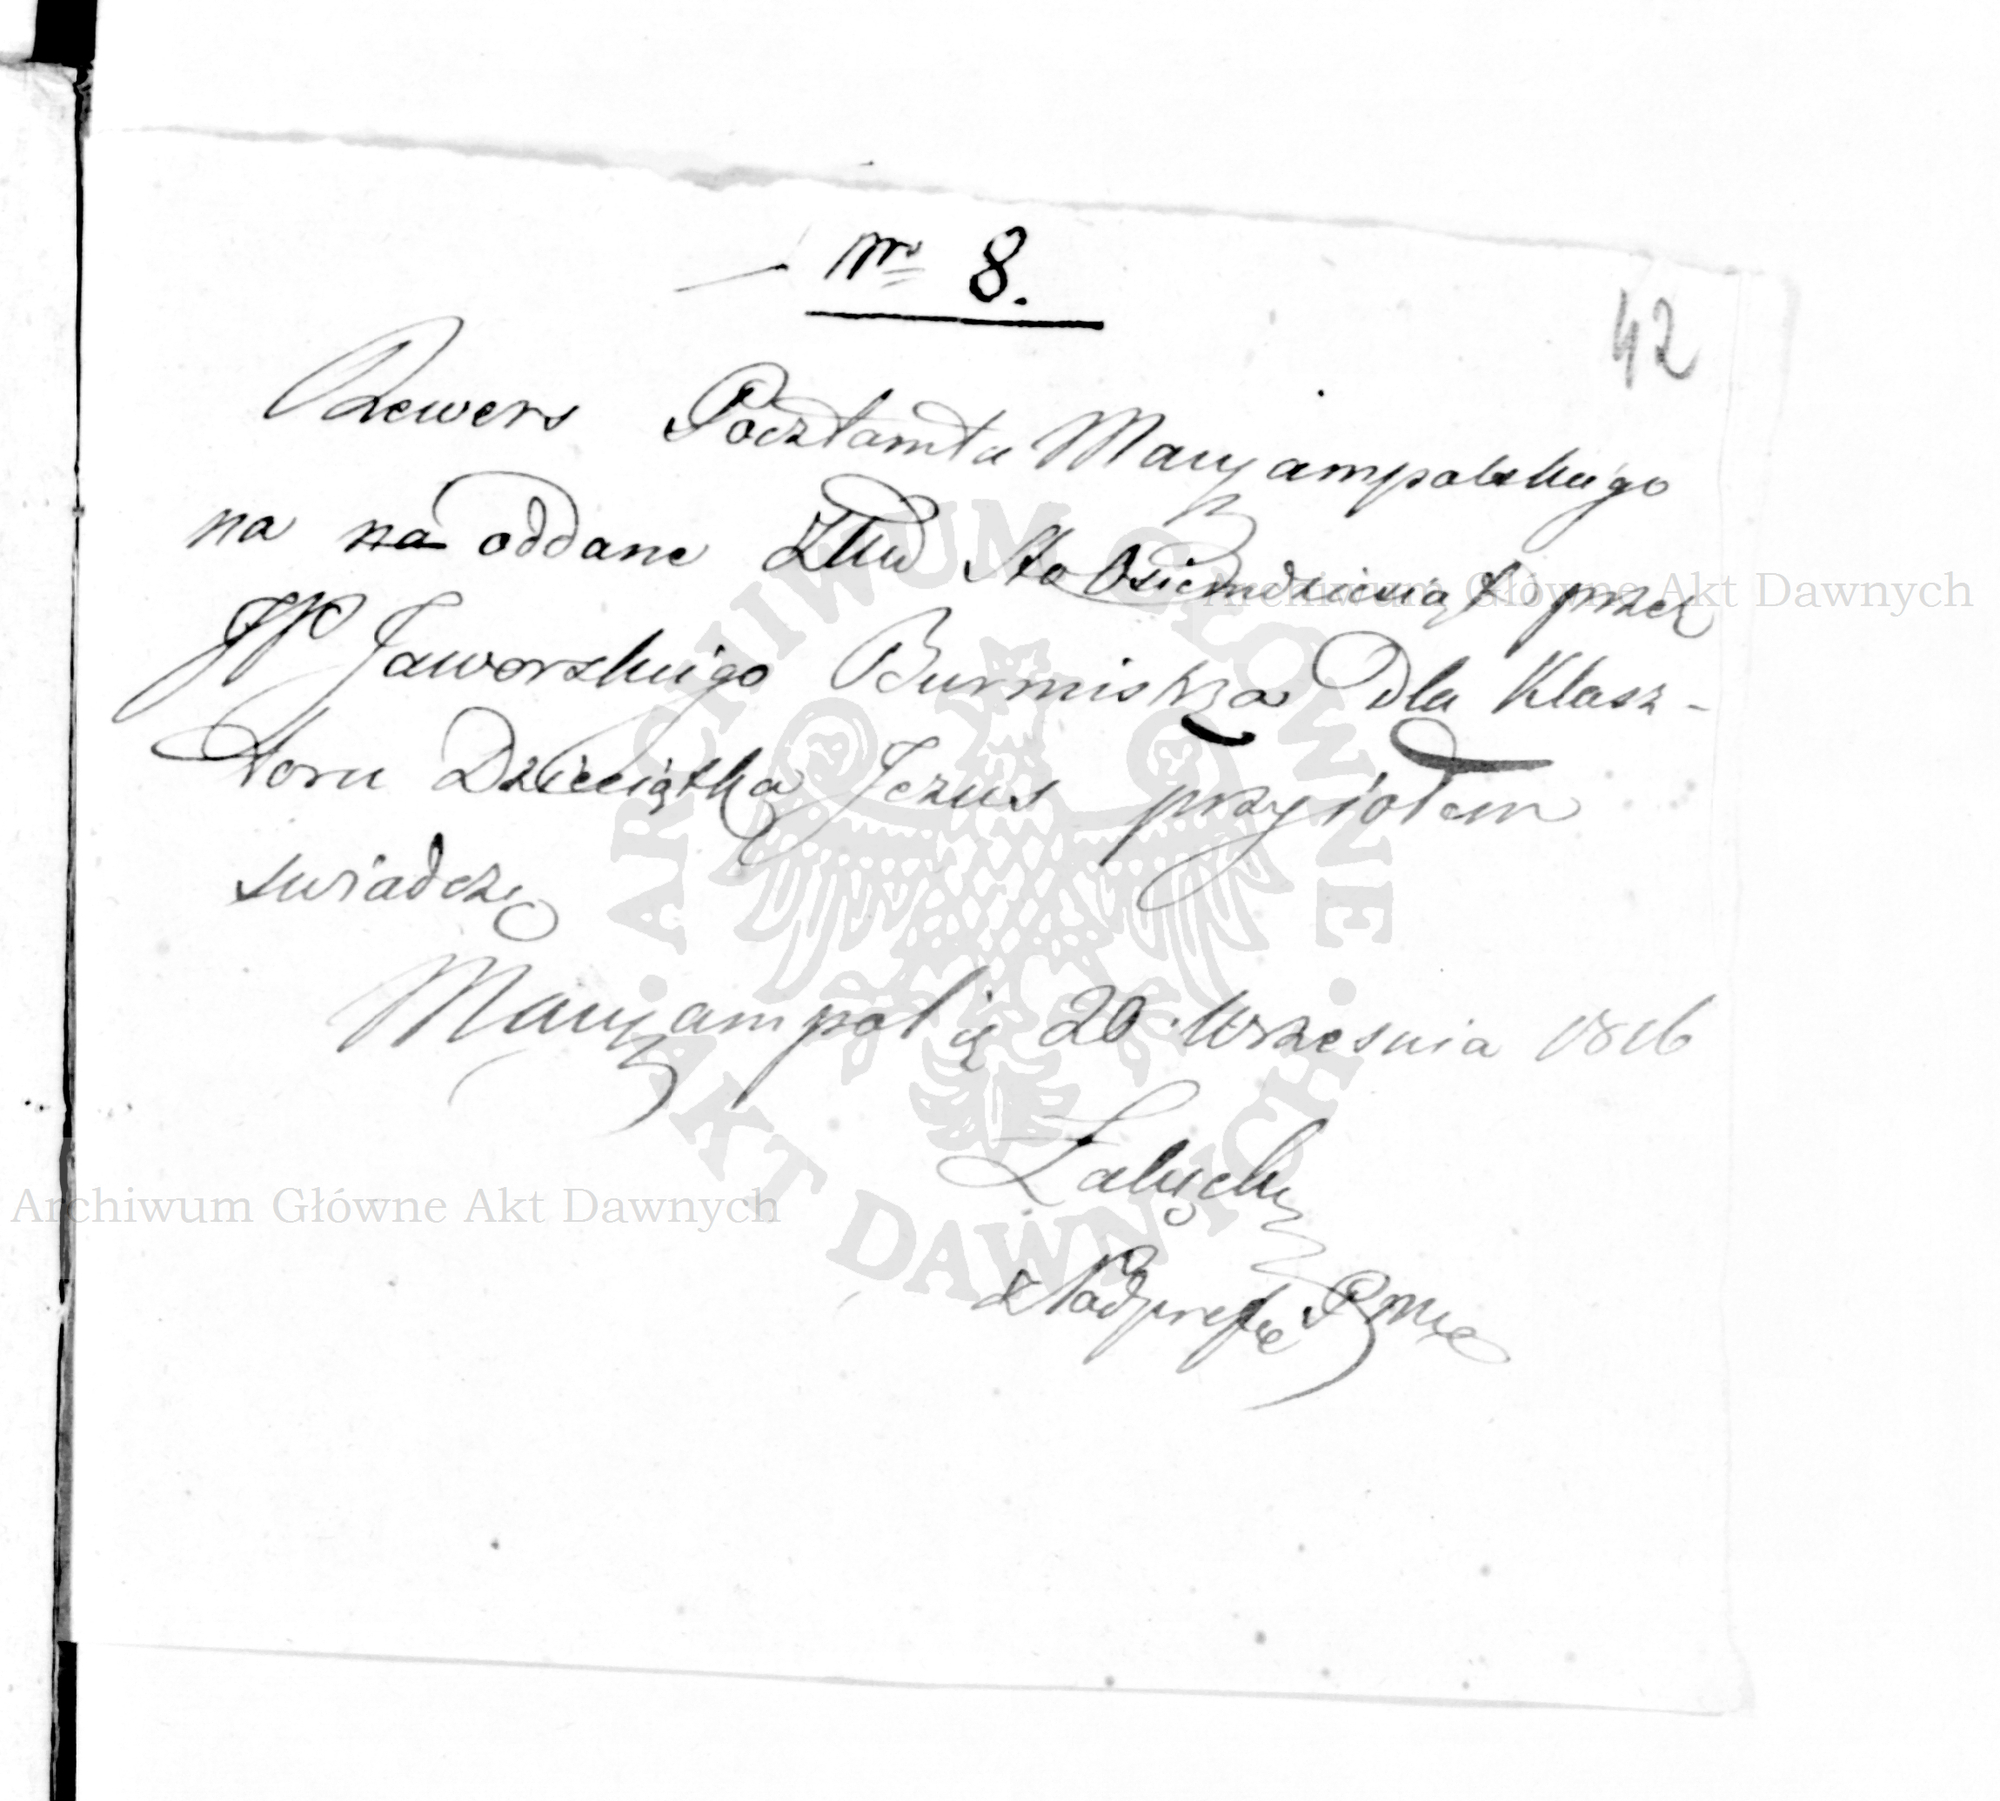 Nro 8.
42
Rewers Pocztamtu Maryampolskiego
na na oddane Złł Sto Osiemdziesiąt przez
JP Jaworskiego Burmistrza Dla Klasz-
toru Dzieciątka Jezus przyiołem
swiadczę
Maryampol 20 Wrzesnia 1816
ARCHIWUM GŁÓWNE AKT DAWNYCH
Archiwum Główne Akt Dawnych
Archiwum Główne Akt Dawnych